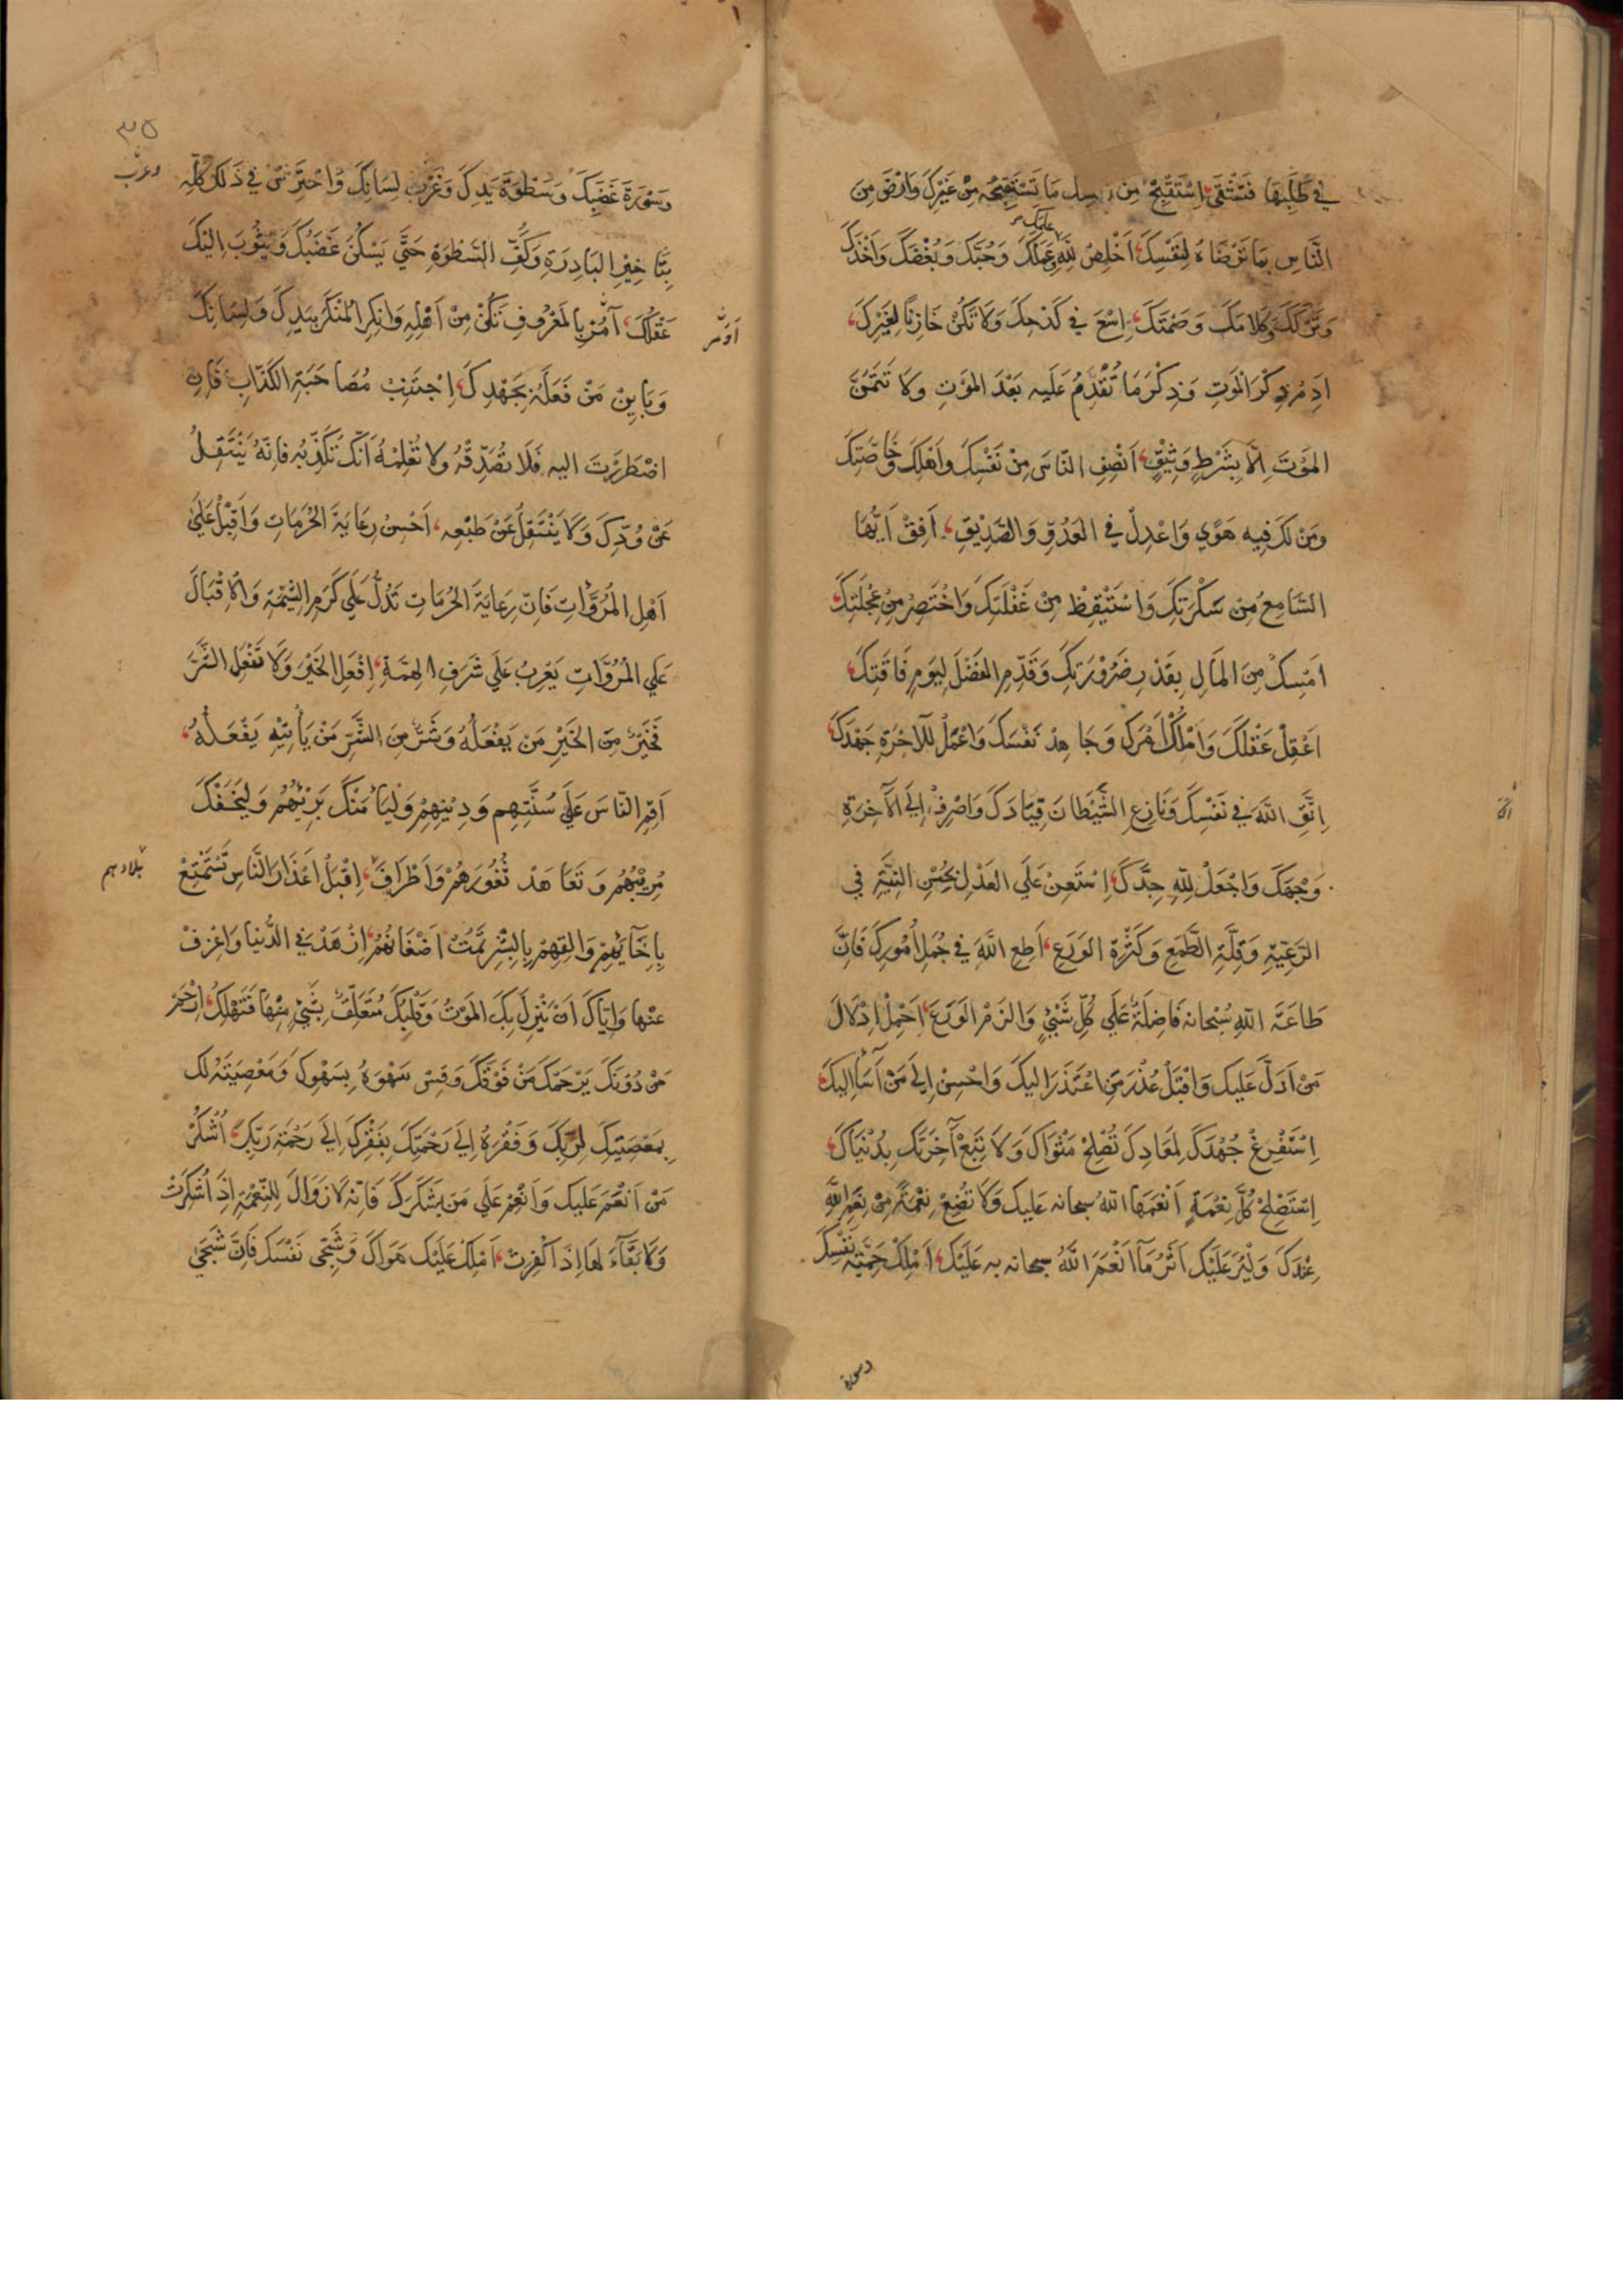 في طَلَبِهَا فَتَشْقَى اِسْتَقْبِحْ مِن نفسِك مَا تَسْتَقْبِحُه مِنْ غَيْرِكَ وَارْضَ مِنَ
النَّاسِ بِمَا تَرْضَاهُ لِنَفْسِكَ اَخْلِصْ لِلّٰهِ عَمَلَكَ وَعِلْمَكَ وَحُبَّكَ وَبُغْضَكَ وَاَخْذَكَ
وَتَرْكَكَ وَكَلامَكَ وَصَمْتَكَ اِسْعَ في كَدْحِكَ وَلَا تَكُنْ خَازِنًا لِغَيْرِكَ
اَدِمْ ذِكْرَ الْمَوتِ وَذِكْرَ مَا تُقْدِمُ عَلَيه بَعْدَ المَوْتِ وَلَا تَتَمَنَّ
المَوْتَ اِلَّا بِشَرْطٍ وَثِيْقٍ اَنْصِفِ النَّاسَ مِنْ نَفْسِكَ وَاَهْلِكَ وَخَاصَّتِكَ
وَمَنْ لَكَ فِيه هَوًي وَاعْدِلْ في العَدُوِّ وَالصَّدِيْقِ اَفِقْ اَيُّهَا
السَّامِعُ مِنْ سَكْرَتِكَ وَاسْتَيْقِظْ مِنْ غَفْلَتِكَ وَاخْتَصِرْ مِنْ عَجَلَتِكَ
اَمْسِكْ مِنَ المَالِ بِقَدْرِ ضَرُوْرَتِكَ وَقَدِّمِ الفَضْلَ لِيَومِ فَاقَتِكَ
اعْقِلْ عَقْلَكَ وَامْلِكْ اَمْرَكَ وَجَاهِدْ نَفْسَكَ وَاعْمَلْ لِلآخِرَةِ جَهْدَكَ
اِتَّقِ اللّٰهَ في نَفْسِكَ وَنَازِعِ الشَّيْطَانَ قِيَادَكَ وَاصْرِفْ اِلَي الآخِرَةِ
وَجْهَكَ وَاجْعَلْ لِلّٰهِ جِدَّكَ اِسْتَعِنْ عَلَي العَدْلِ بِحُسْنِ النِّيَّةِ في
الرَّعِيَّةِ وَقِلَّةِ الطَّمَعِ وَكَثْرَةِ الوَرَعِ اَطِعِ اللّٰهَ في جُمَلِ اُمُوْرِكَ فَاِنَّ
طَاعَةَ اللّٰهِ سُبْحانه فَاضِلَةٌ عَلَي كُلِّ شَيْءٍ وَالْزَمِ الوَرَعَ اِحْتَمِلْ اِدْلَالَ
مَنْ اَدَلَّ عَلَيك وَاقْبَلْ عُذْرَ مَنِ اعْتَذَرَ اِليكَ وَاحْسِنْ اِلَي مَنْ اَسَآءَ اِليكَ
اِسْتَفْرِغْ جُهْدَكَ لِمَعَادِكَ تُصْلِحْ مَثْوَاكَ وَلَا تَبِعْ آخِرَتَكَ بِدُنْيَاكَ
اِسْتَصْلِحْ كُلَّ نِعْمَةٍ اَنْعَمَهَا اللّٰهُ سبحانه عَلَيكَ وَلَا تُضِعْ نِعْمَةً مِنْ نِعَمِ اللّٰهِ
عِنْدَكَ وَلْيُرَ عَلَيْكَ اَثَرُ مَآ اَنْعَمَ اللّٰهُ سبحانه به عَلَيْكَ اَمْلِكْ حَمِيَّةَ نَفْسِكَ
وسورة
٣٥
وَسَوْرَةَ غَضَبِكَ وَسَطْوَةَ يَدِكَ وَغَرْبَ لِسَانِكَ وَاحْتَرِسْ في ذَلِكَ كُلِّه
بِتَاخِيْرِ البَادِرَةِ وَكَفِّ السَّطْوَةِ حَتَّي يَسْكُنَ غَضَبُكَ وَيَثُوبَ اِلَيْكَ
عَقْلُكَ اْمُرْ بِالْمَعْرُوفِ تَكُنْ مِنْ اَهْلِهِ وَانكِرِ الْمُنْكَرَ بِيَدِكَ وَلِسَانِكَ
وَبَايِنْ مَنْ فَعَلَهُ بِجَهْدِكَ اِجْتَنِبْ مُصَاحَبَةَ الكَذَّابِ فَاِنِ
اضْطُرِرْتَ اِليه فَلَا تُصَدِّقْهُ وَلَا تُعْلِمْهُ اَنَّكَ تُكَذِّبُه فَاِنَّهُ يَنْتَقِلُ
عَنْ وُدِّكَ وَلَا يَنْتَقِلُ عَنْ طَبْعِه اَحْسِنْ رِعَايَةَ الحُرُمَاتِ وَاَقْبِلْ عَلَيٰ
اَهْلِ المُرُوَّاتِ فَاِنَّ رِعَايَةَ الحُرُمَاتِ تَدُلُّ عَلَي كَرَمِ الشِّيْمَةِ وَالْاِقْبَالَ
عَلَي المُرُوَّاتِ يُعْرِبُ عَلَي شَرَفِ الهِمَّةِ اِفْعَلِ الخَيْرَ وَلَا تَفْعَلِ الشَّرَّ
فَخَيْرٌ مِنَ الخَيْرِ مَن يَفْعَلُهُ وَشَرٌّ مِنَ الشَّرِّ مَنْ يَأْتِيْهِ يَفْعَلُهُ
اَقِمِ النَّاسَ عَلَي سُنَّتِهِمْ وَدِيْنِهِمْ وَلْيَأْمَنْكَ بَرِيْئُهُمْ وَلْيَخَفْكَ
مُرِيْبُهُمْ وَتَعَاهَدْ ثُغُوْرَهُمْ وَاَطْرَافَ اِقْبَلْ اَعْذَارَ النَّاسِ تَسْتَمْتِعْ
بِاِخَآئِهِمْ وَالْقِهِمْ بِالبِشْرِ تُمِتْ اَضْغَانَهُمْ اِزْهَدْ في الدُّنيَا وَاعْزِفْ
عَنْهَا وَاِيَّاكَ اَنْ يَنْزِلَ بِكَ المَوْتُ وَقَلْبُكَ مُتَعَلِّقٌ بِشَيْءٍ مِنْهَا فَتَهْلِكُ اِرْحَمْ
مَنْ دُوْنَكَ يَرْحَمْكَ مَنْ فَوْقَكَ وَقِسْ سَهْوَهُ بِسَهْوِكَ وَمَعْصِيَتَهُ لَكَ
بِمَعْصِيَتِكَ لِرَبِّكَ وَفَقْرَهُ اِلَي رَحْمَتِكَ بِفَقْرِكَ اِلَي رَحْمَةِ رَبِّكَ اُشْكُرْ
مَنْ اَنْعَمَ عَلَيكَ وَاَنْعِمْ عَلَي مَنْ يَشْكُرُكَ فَاِنَّه لَا زَوَالَ لِلنِّعْمَةِ اِذَا شُكِرَتْ
وَلَا بَقَآءَ لَهَا اِذَا كُفِرَتْ اَمْلِكْ عَلَيْكَ هَوَاكَ وَشَجَى نَفْسَكَ فَاِنَّ شَجَيٰ
بلادهم